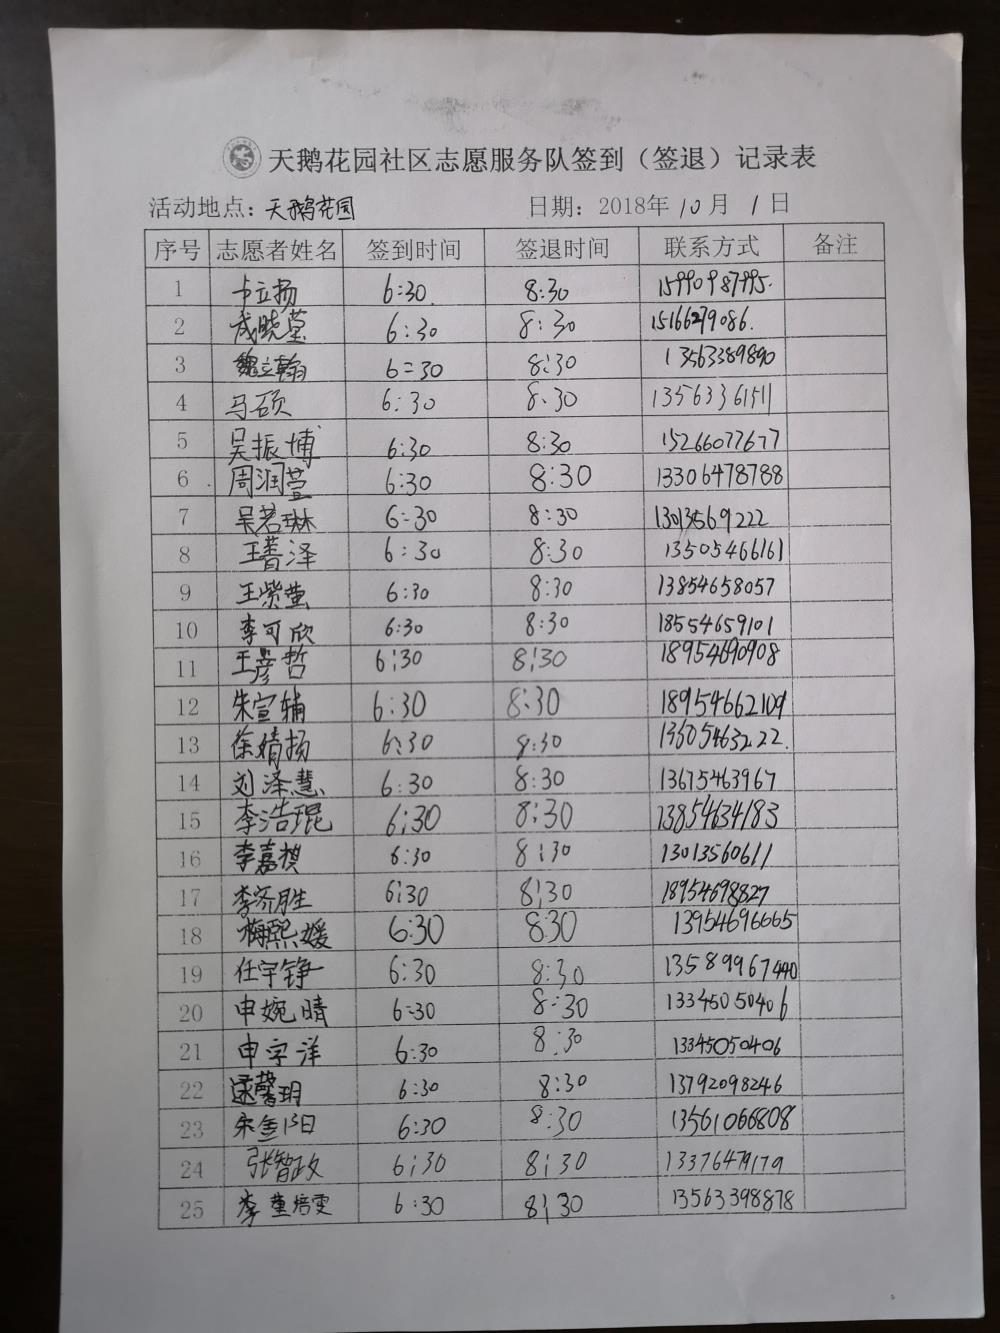 天鹅花园社区志愿服务队签到（签退）记录表
活动地点：天鹅花园 日期：2018年10月1日
序号 志愿者姓名 签到时间 签退时间 联系方式 备注
1 卡立扬 6:30 8:30 15990987995
2 成晓莹 6:30 8:30 15166279086
3 魏立翰 6:30 8:30 13563389890
4 马硕 6:30 8:30 13563361511
5 吴振博 6:30 8:30 15266077677
6 周润萱 6:30 8:30 13306478788
7 吴若琳 6:30 8:30
8 王菁泽 6:30 8:30 13505466161
9 王紫萤 6:30 8:30 13854658057
10 李可欣 6:30 8:30 18554659101
11 王彦哲 6:30 8:30 18954690908
12 朱宣辅 6:30 8:30 18954662109
13 徐婧扬 6:30 8:30
14 刘泽慧 6:30 8:30 13675463967
15 李浩琨 6:30 8:30 13854634183
16 李嘉祺 6:30 8:30 13013560611
17 李济胜 6:30 8:30 18954698827
18 梅熙媛 6:30 8:30 13954696665
19 任宇铮 6:30 8:30 13589967440
20 申婉晴 6:30 8:30 13345050406
21 申字洋 6:30 8:30 13345050406
22 馨玥 6:30 8:30 13792098246
23 6:30 8:30 13561066808
24 张智政 6:30 8:30 13376479179
25 李董焙雯 6:30 8:30 13563398878